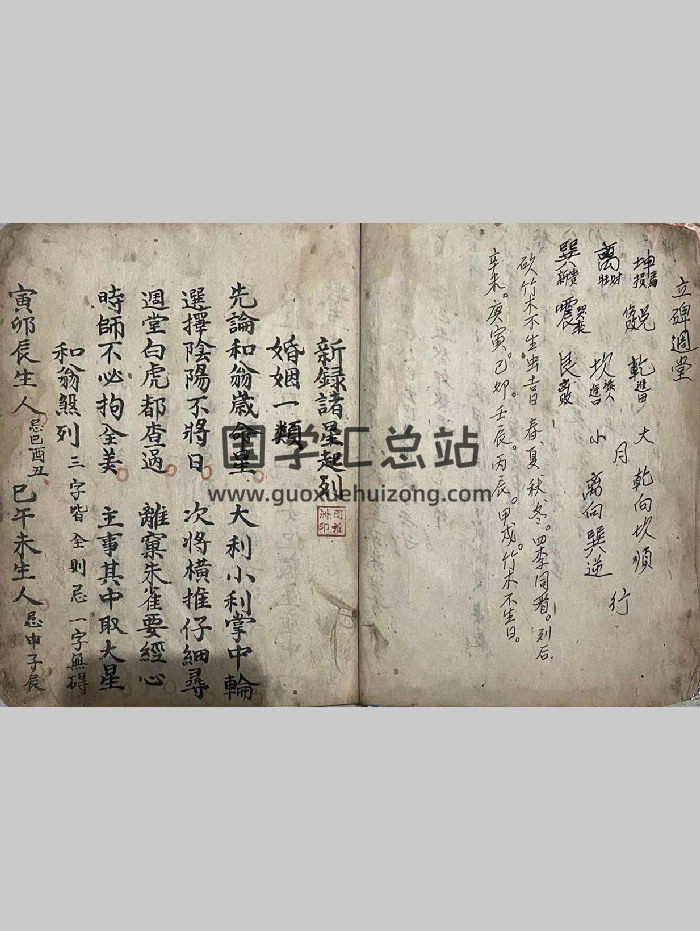 立碑週堂
坤 兌 乾 大 乾向坎順
月 行
離 坎 小 離向巽逆
巽 震 艮
砍竹木不生虫吉 春夏秋冬。四季同看。列后
辛未。庚寅。己卯。壬辰。丙辰。甲戌。竹木不生日。
新録諸星起列
婚姻一類
先論和翁歲命星 大利小利掌中輪
選擇陰陽不將日 次將橫推仔細尋
週堂白虎都查過 離窠朱雀要經心
時師不必拘全美 主事其中取大星
和翁煞列 三字皆全則忌 一字無碍
寅卯辰生人 忌巳酉丑 巳午未生人 忌申子辰
国学汇总站
www.guoxuehuizong.com